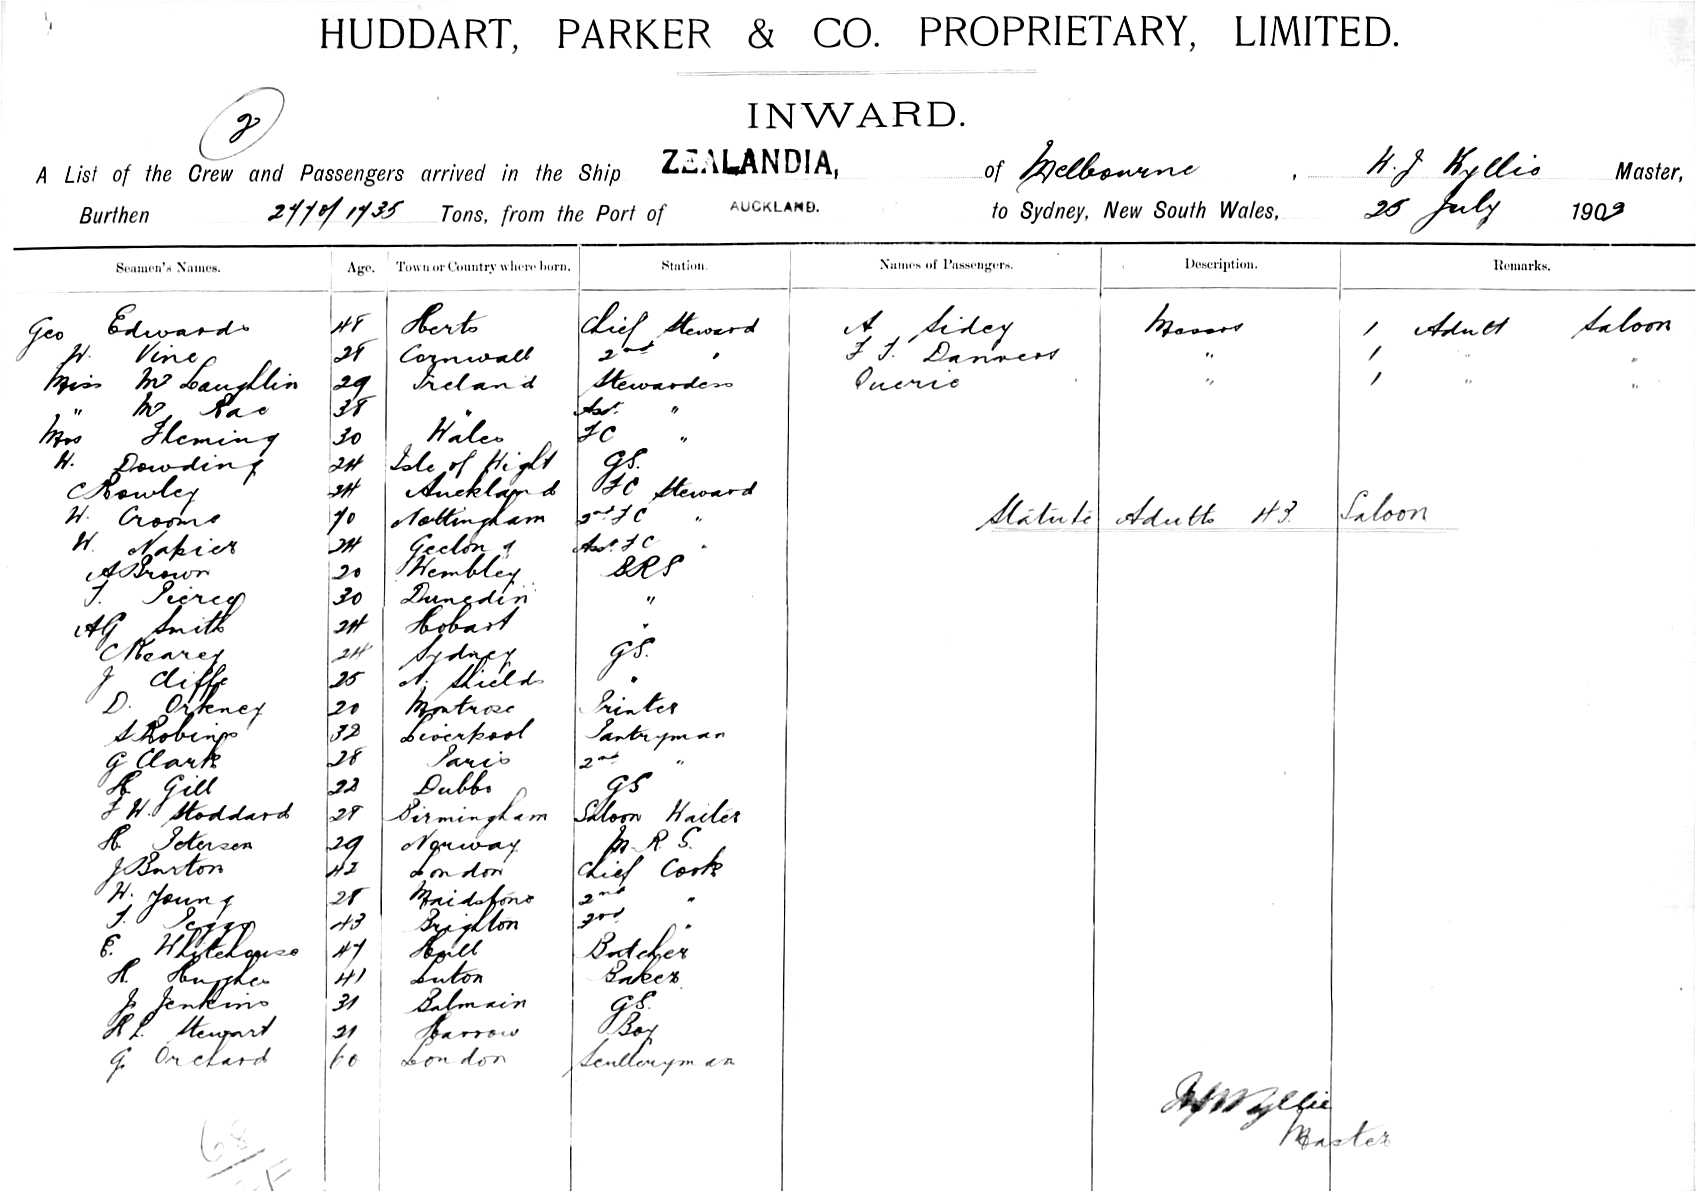 HUDDART, PARKER & CO. PROPRIETARY, LIMITED.
2
INWARD.
A List of the Crew and Passengers arrived in the Ship ZEALANDIA, of Melbourne, Master,
Burthen Tons, from the Port of AUCKLAND. to Sydney, New South Wales, 25 July 1909
Seamen's Names. Age. Town or Country where born. Station. Names of Passengers. Description. Remarks.
Geo Edwards 48 Herts Chief Steward A Sidey Messrs 1 Adult Saloon
W. Vine 28 Cornwall 2nd " F F. Danvers " 1 " "
Miss Mc Laughlin 29 Ireland Stewardess Querie " 1 " "
" Mc Rae 38 " Asst. "
Mrs Fleming 30 Wales FC "
W. Dowding 24 Isle of Wight GS.
C Rowley 24 Auckland FC Steward
W. Crooms 40 Nottingham 2nd FC " Statute Adults 43. Saloon
W. Napier 24 Geelong Asst. FC "
A Brown 20 Wembley SRS
F. Piercy 30 Dunedin "
AG Smith 24 Hobart "
C Kearey 24 Sydney GS.
J Cliffe 25 N. Shields "
D. Orkney 20 Montrose Printer
S Robins 32 Liverpool Pantryman
G Clark 28 Paris 2nd "
H. Gill 22 Dubbo GS
F W. Stoddard 28 Birmingham Saloon Waiter
H. Petersen 29 Norway M. R. S.
J Burton 42 London Chief Cook
W. Young 28 Maidstone 2nd "
F. 43 Brighton 3rd "
E. Whitehouse 47 Hull Butcher
H. Hughes 41 Luton Baker
J. Jenkins 31 Balmain GS.
H L. Stewart 21 Harrow Boy
G Orchard 60 London Sculleryman
Wyllie
Master
68